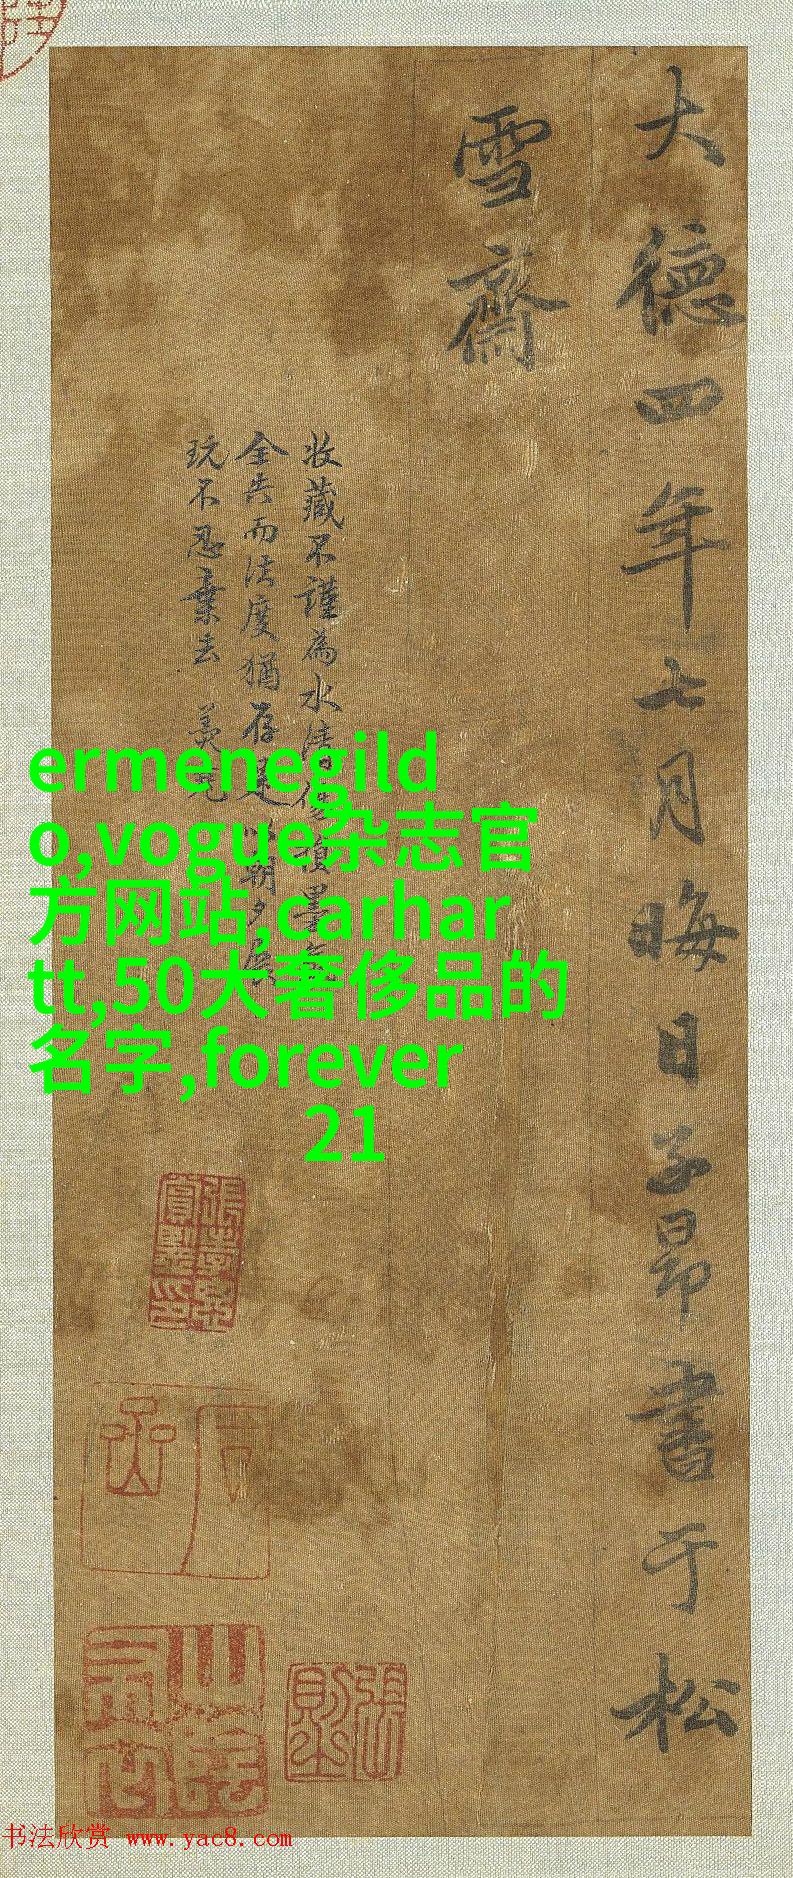 大德四年七月晦日子昂書于松
雪齋
收藏不謹為水漬傷損墨氣
全失而法度猶存足以朝夕展
玩不忍棄去
ermenegild
o,vogue杂志官
方网站,carhar
tt,50大奢侈品的
名字,forever
21
书法欣赏 www.yac8.com